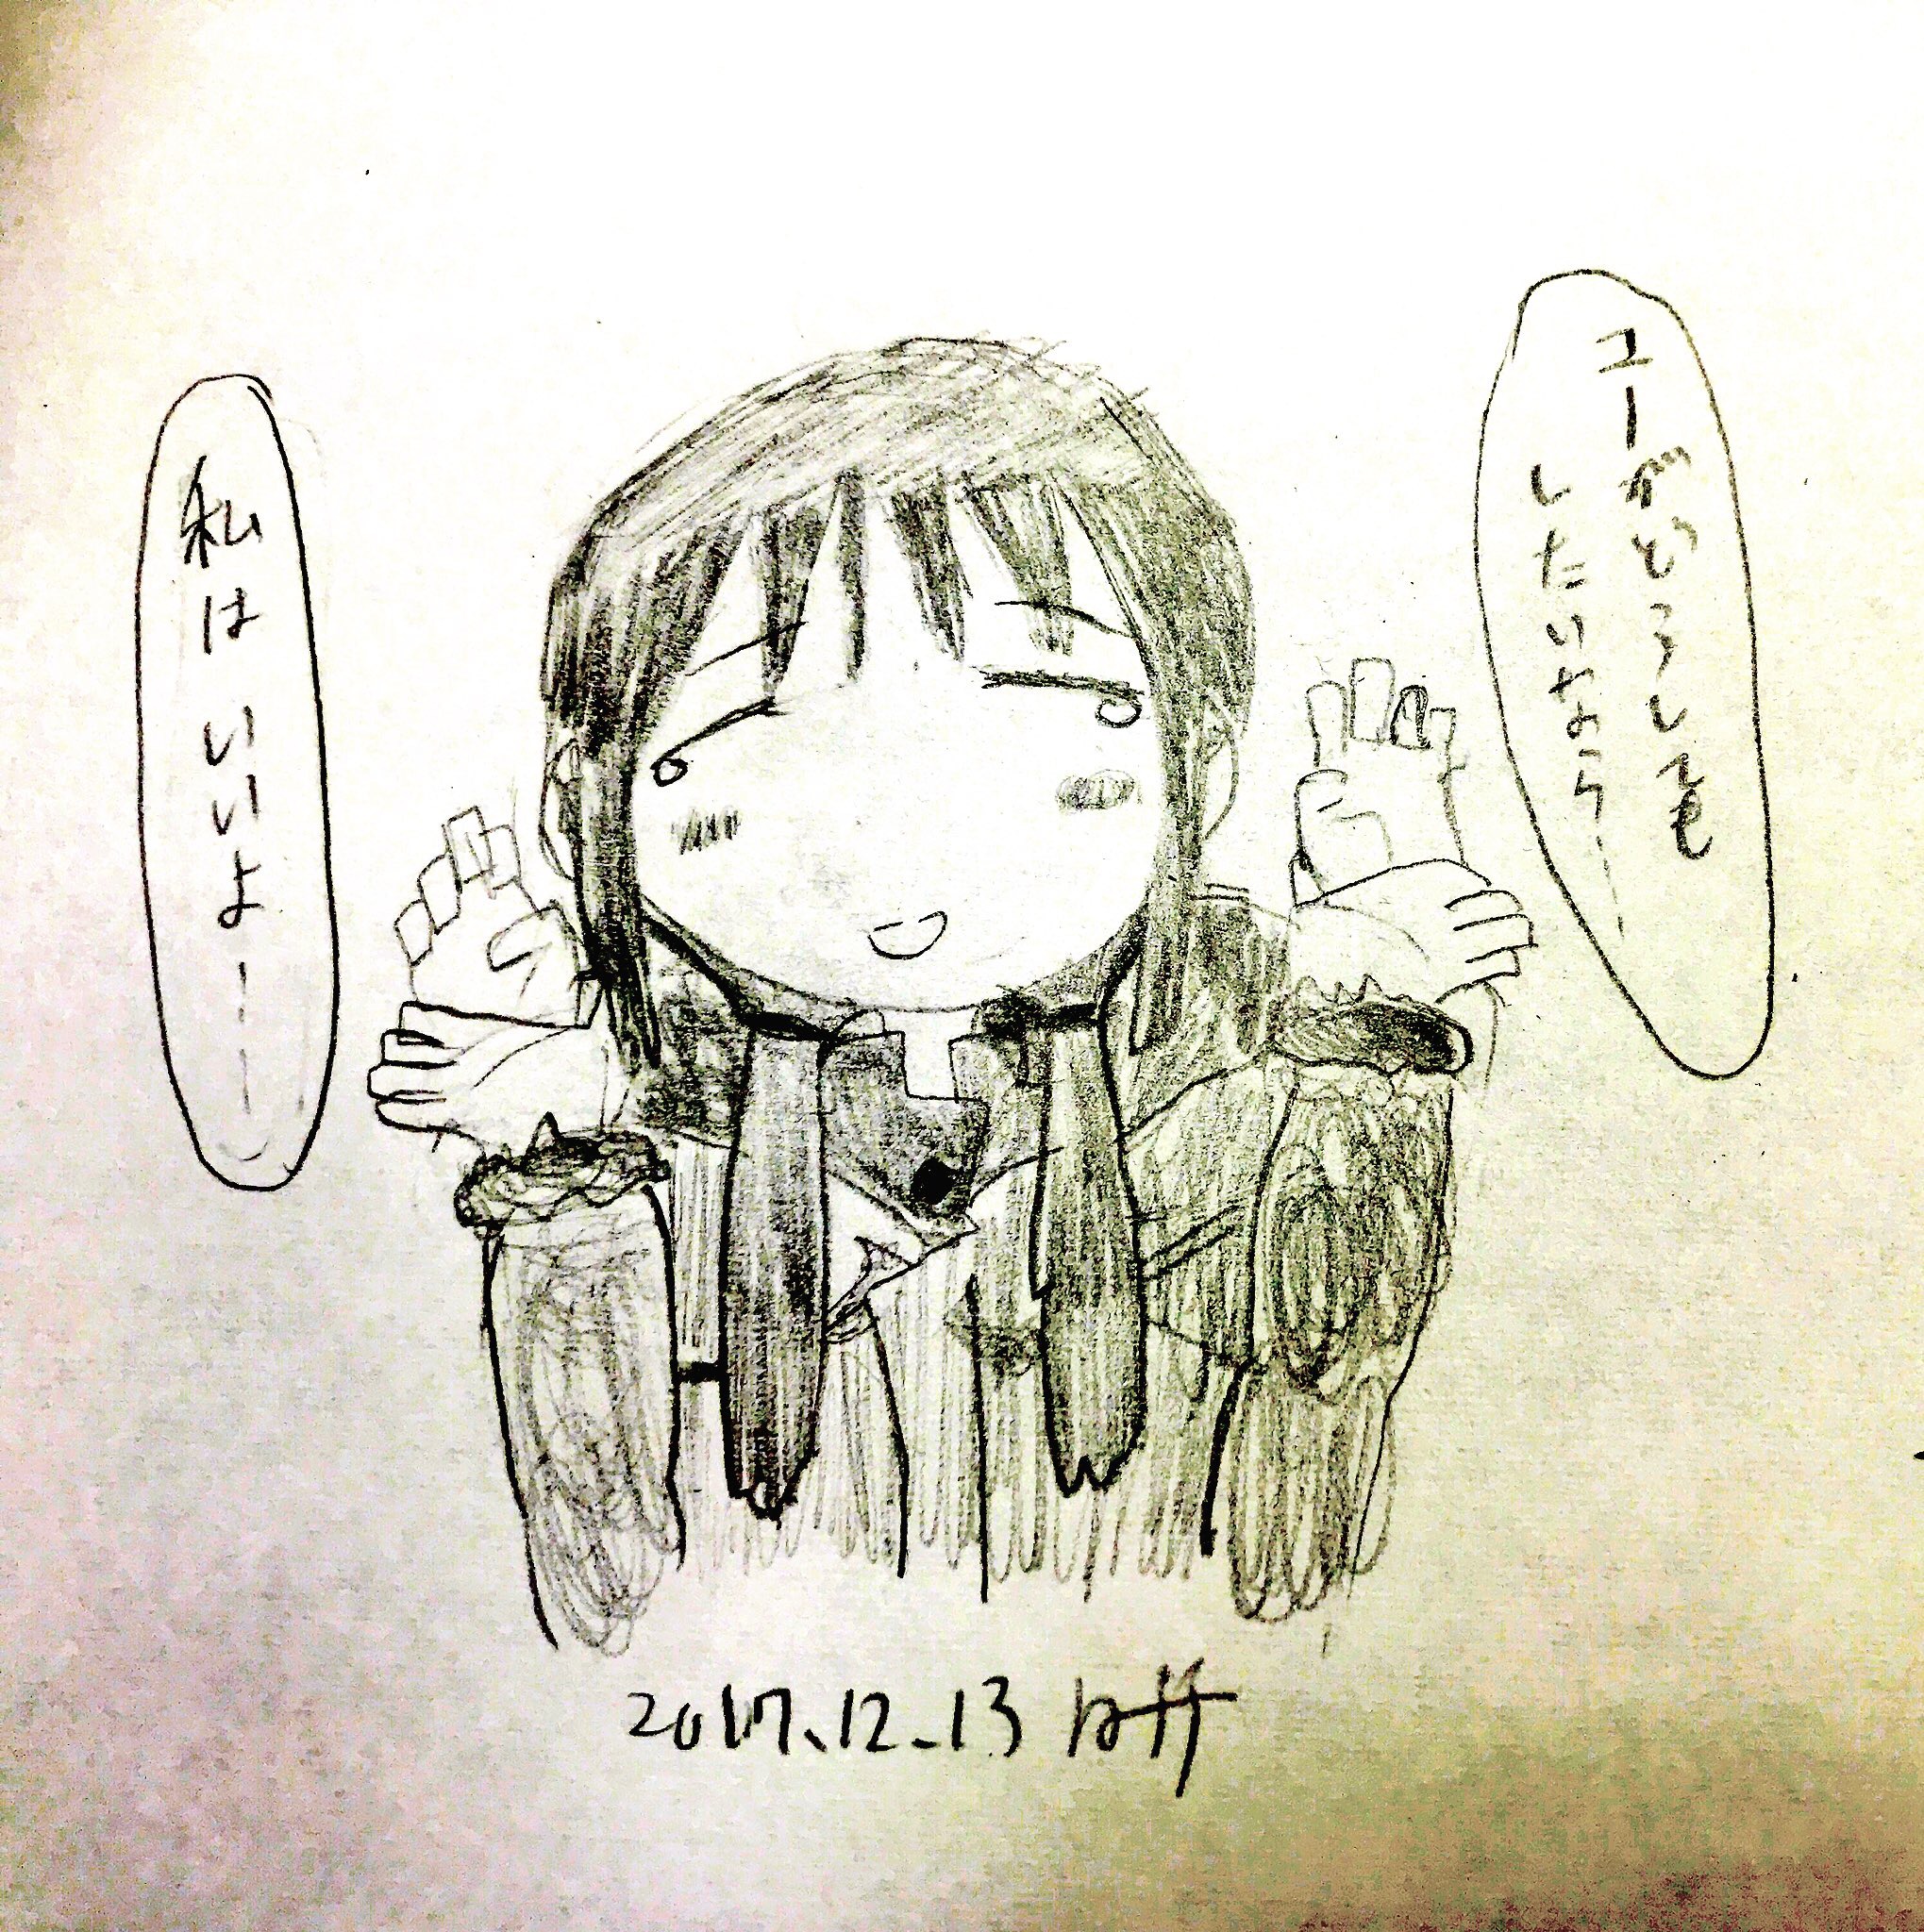 ユーがどうしても
したいなら――
私はいいよ――――
2017.12.13